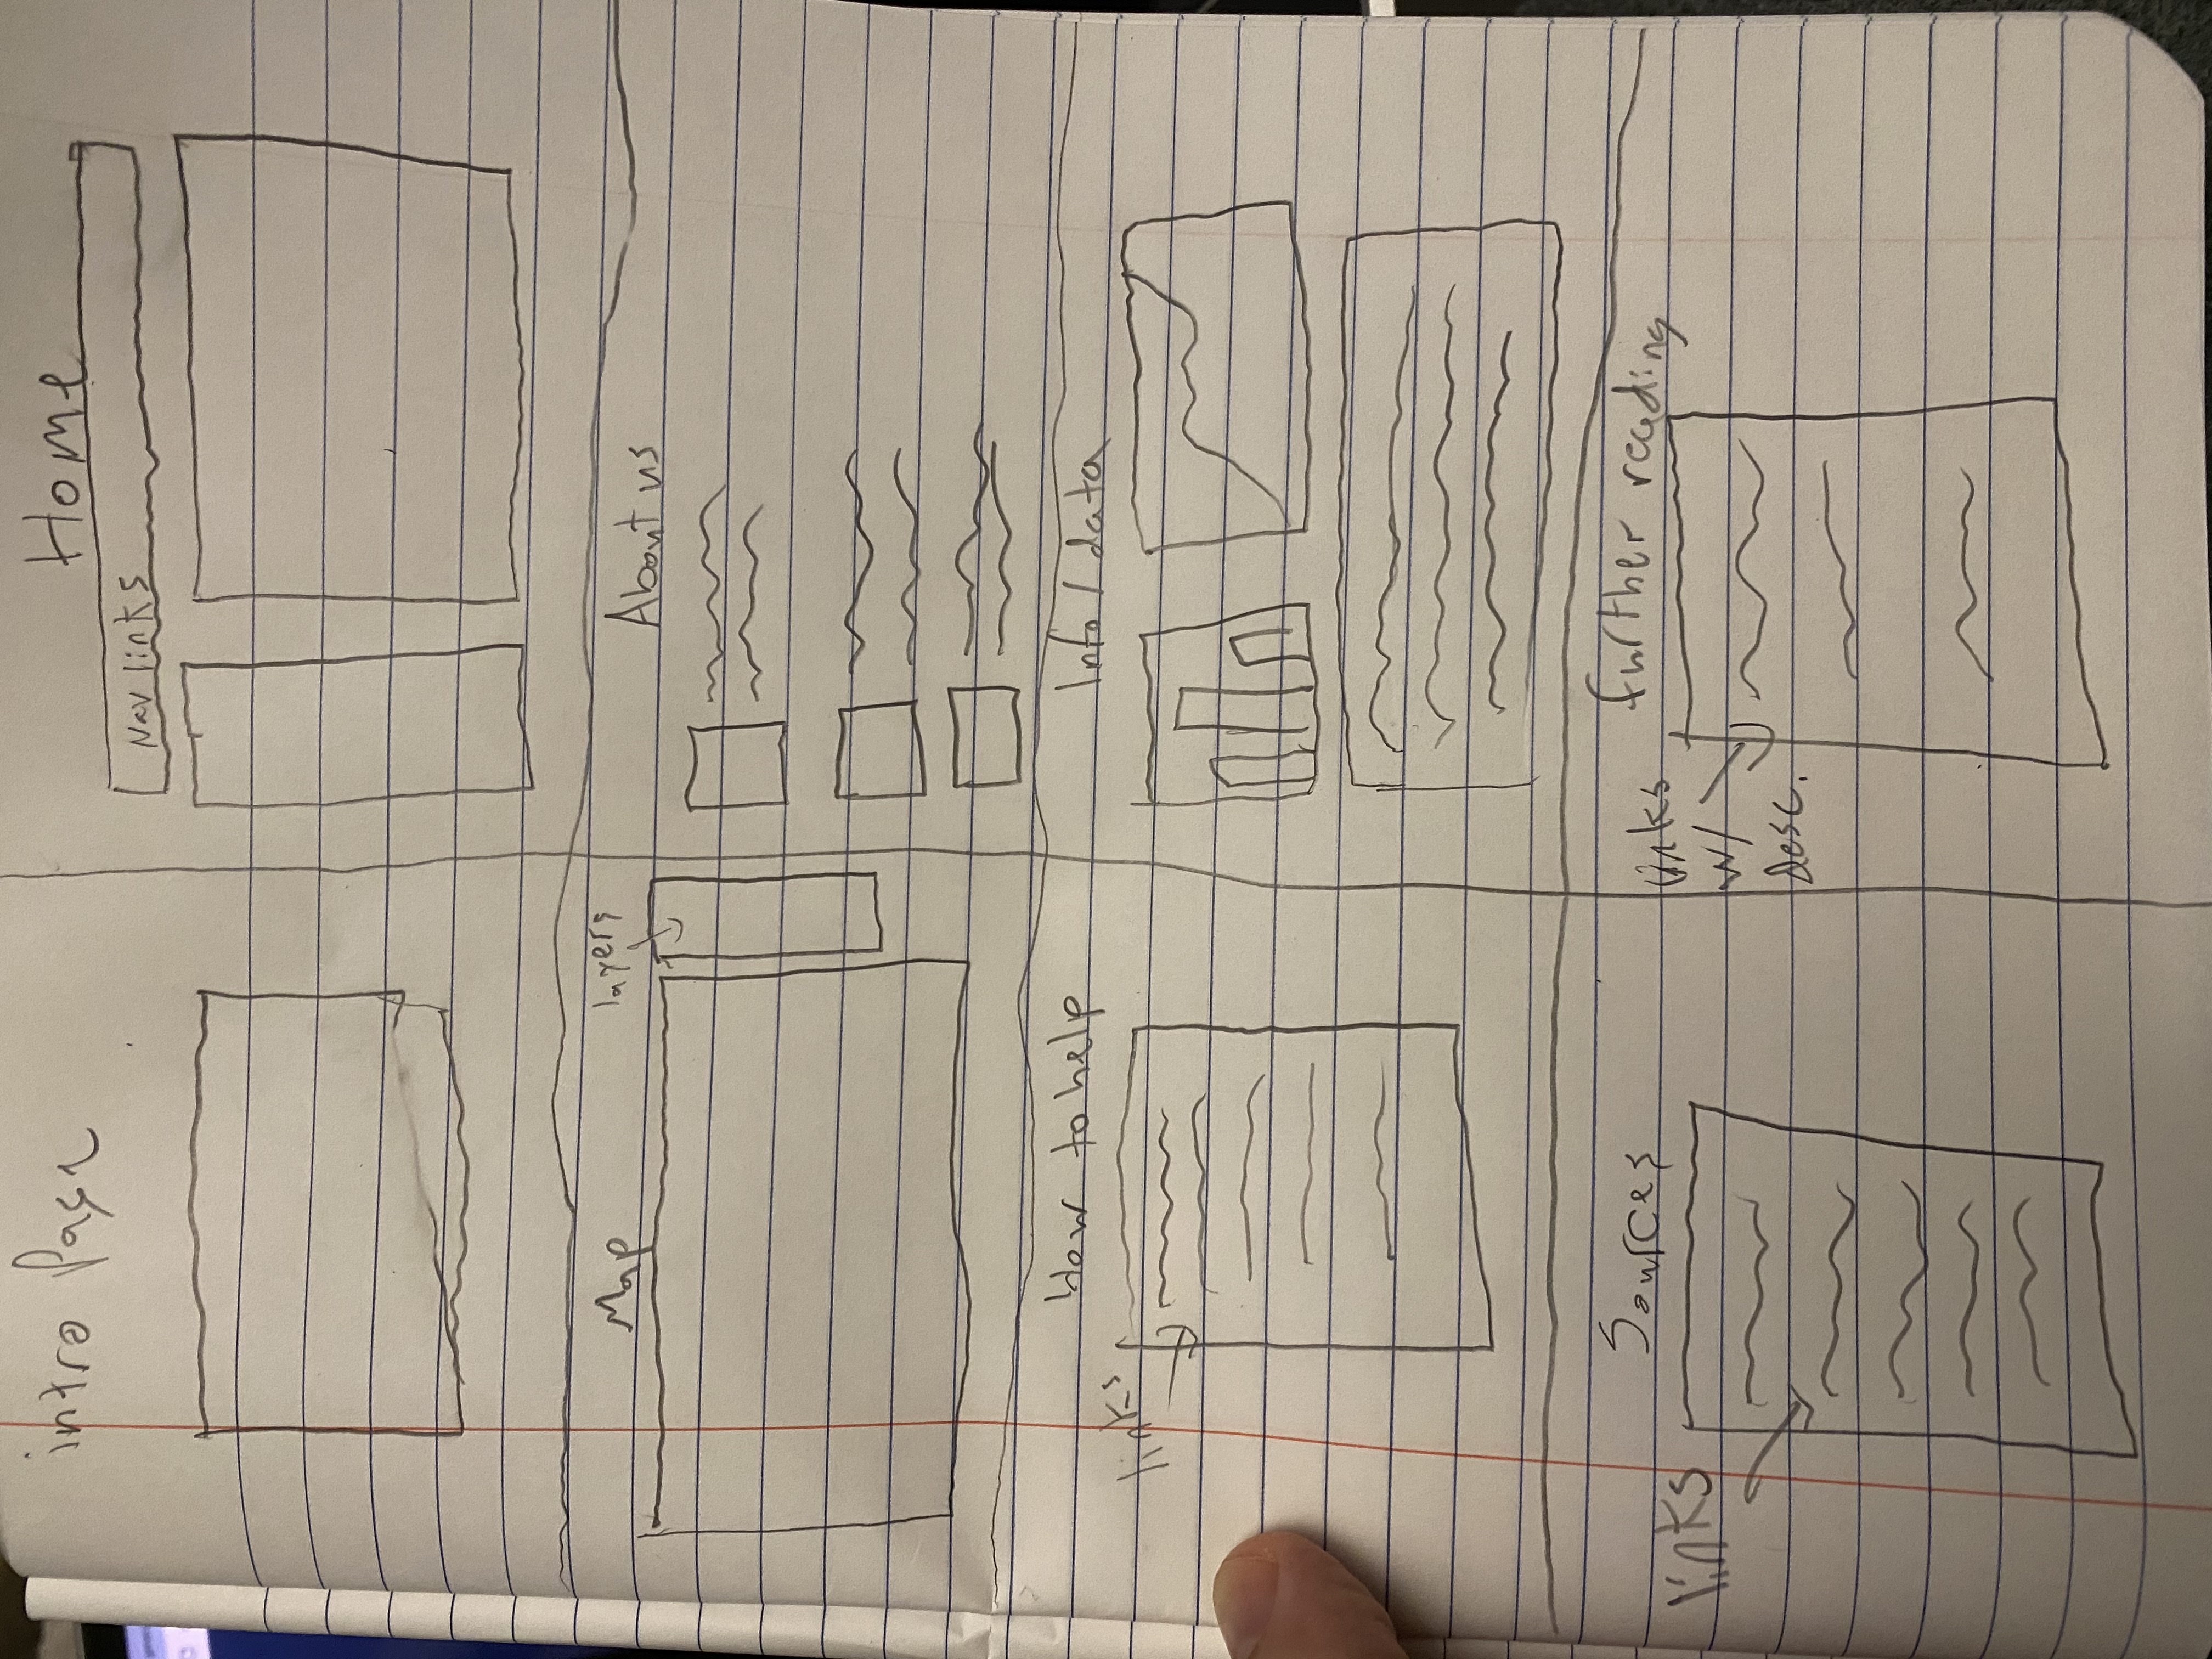 intro Page
Home
Nav links
Map
layers
About us
How to help
links
Info/data
Sources
links
further reading
links
w/
Desc.